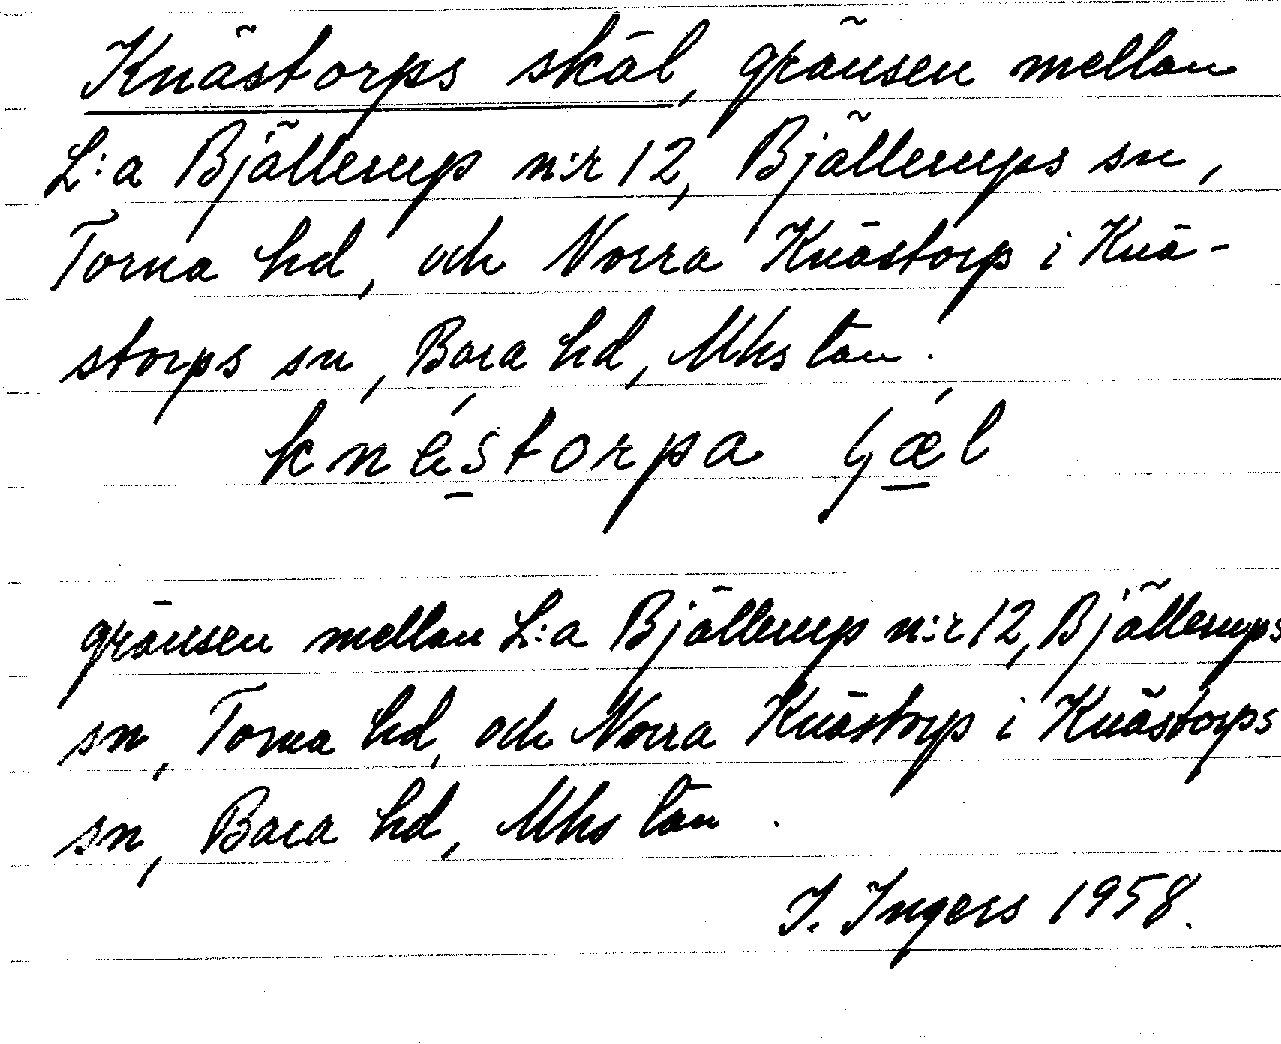 Knästorps skäl, gränsen mellan
L:a Bjällerup n:r 12, Bjällerups sn,
Torna hd, och Norra Knästorp i Knä-
storps sn, Bara hd, Mhs län.
knästorpa ʃæ̱l
gränsen mellan L:a Bjällerup n:r 12, Bjällerups
sn, Torna hd, och Norra Knästorp i Knästorps
sn, Bara hd, Mhs län.
I. Ingers 1958.